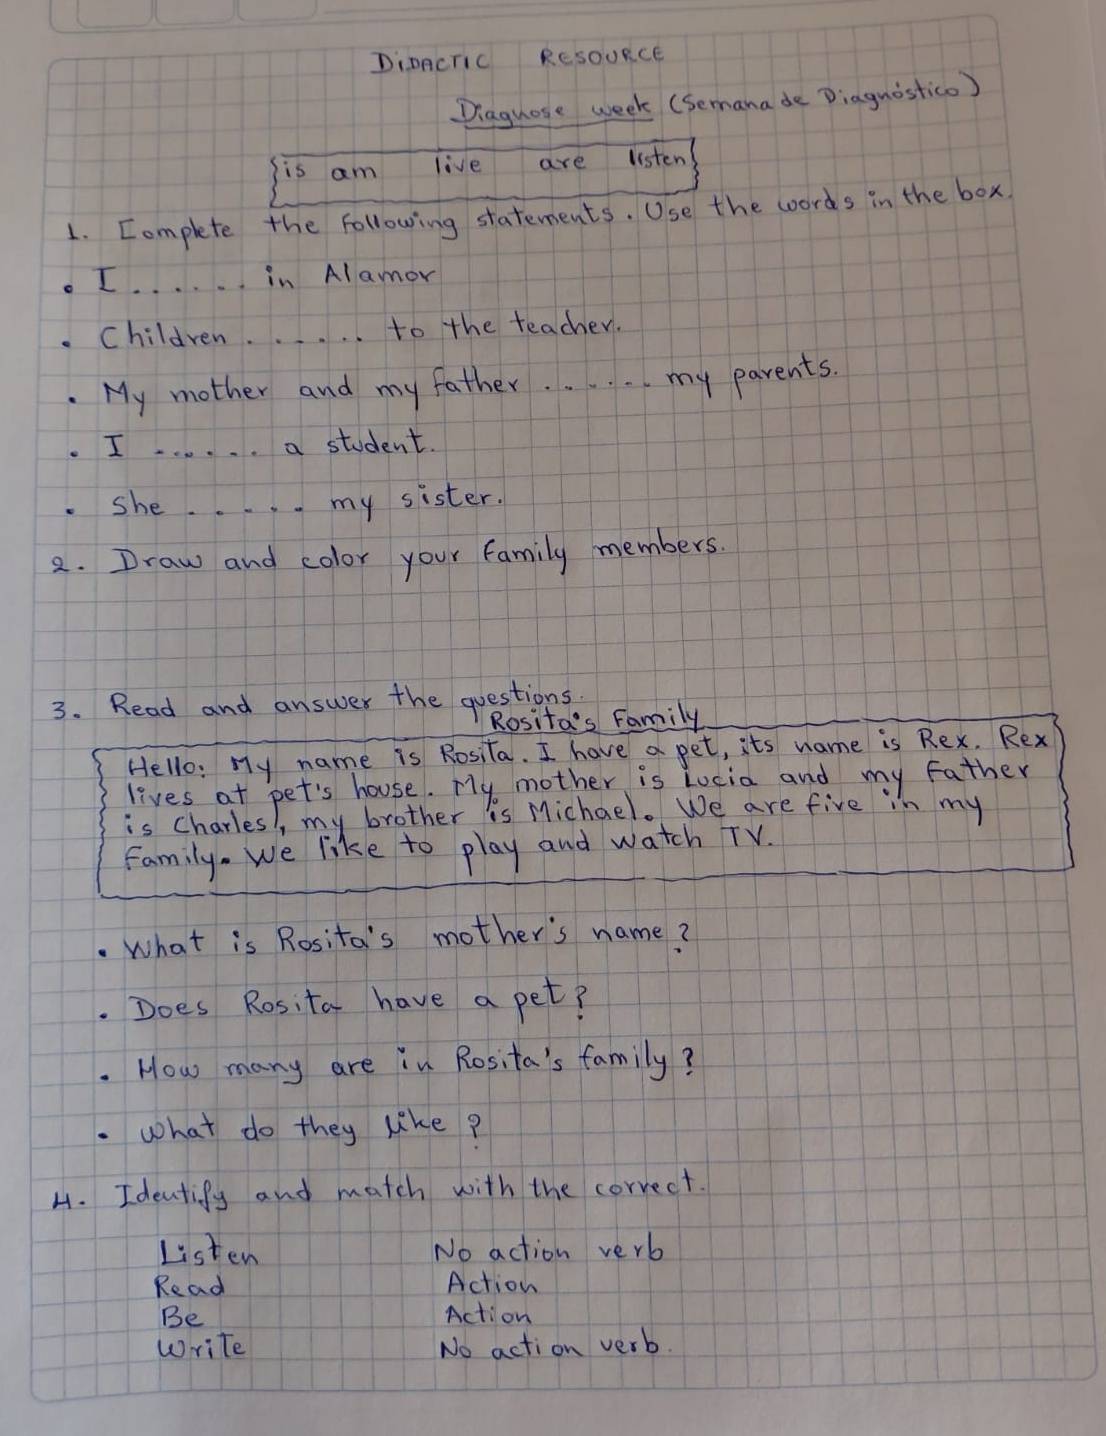 DIDACTIC RESOURCE
Diagnose week (Semana de Diagnóstico)
is am live are listen
1. Complete the following statements. Use the words in the box.
• I ...... in Alamor
• Children ...... to the teacher.
• My mother and my father ...... my parents.
• I ...... a student.
• She ..... my sister.
2. Draw and color your family members.
3. Read and answer the questions.
Rosita's Family
Hello: My name is Rosita. I have a pet, its name is Rex. Rex
lives at pet's house. My mother is Lucia and my father
is Charles, my brother is Michael. We are five in my
family. We like to play and watch TV.
• What is Rosita's mother's name?
• Does Rosita have a pet?
• How many are in Rosita's family?
• What do they like?
4. Identify and match with the correct.
Listen No action verb
Read Action
Be Action
Write No action verb.